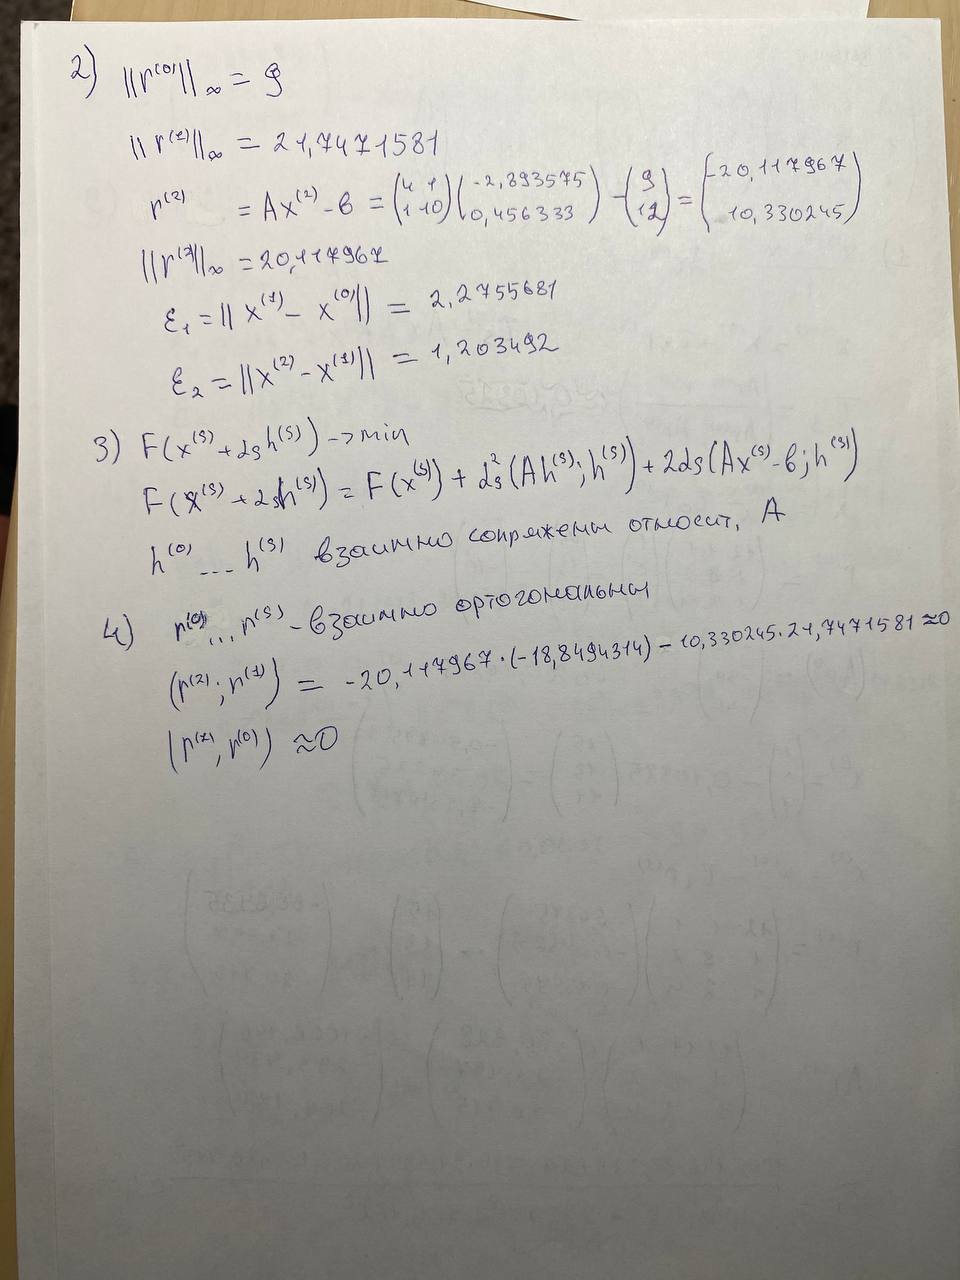 2) ||r⁽⁰⁾||∞ = 9
||r⁽¹⁾||∞ = 21,7471581
r⁽²⁾ = Ax⁽²⁾ - в = (4 1; 1 10) (-2,893575; 0,456333) - (9; 12) = (-20,117967; 10,330245)
||r⁽²⁾||∞ = 20,117967
ε₁ = || x⁽¹⁾ - x⁽⁰⁾ || = 2,2755681
ε₂ = ||x⁽²⁾ - x⁽¹⁾|| = 1,203492
3) F(x⁽ˢ⁾ + αsh⁽ˢ⁾) -> min
F(x⁽ˢ⁾ + αsh⁽ˢ⁾) = F(x⁽ˢ⁾) + αs²(Ah⁽ˢ⁾; h⁽ˢ⁾) + 2αs(Ax⁽ˢ⁾ - в; h⁽ˢ⁾)
h⁽⁰⁾ ... h⁽ˢ⁾ взаимно сопряжены относит, A
4) r⁽⁰⁾ ... r⁽ˢ⁾ - взаимно ортогональны
(r⁽²⁾; r⁽¹⁾) = -20,117967 · (-18,8494314) - 10,330245 · 21,7471581 ≈ 0
(r⁽¹⁾, r⁽⁰⁾) ≈ 0